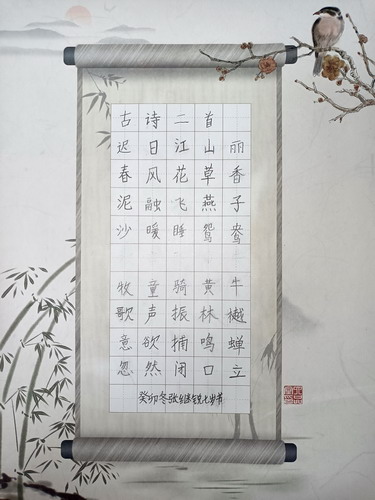 古诗二首
迟日江山丽
春风花草香
泥融飞燕子
沙暖睡鸳鸯
牧童骑黄牛
歌声振林樾
意欲捕鸣蝉
忽然闭口立
癸卯冬张继锐七岁书